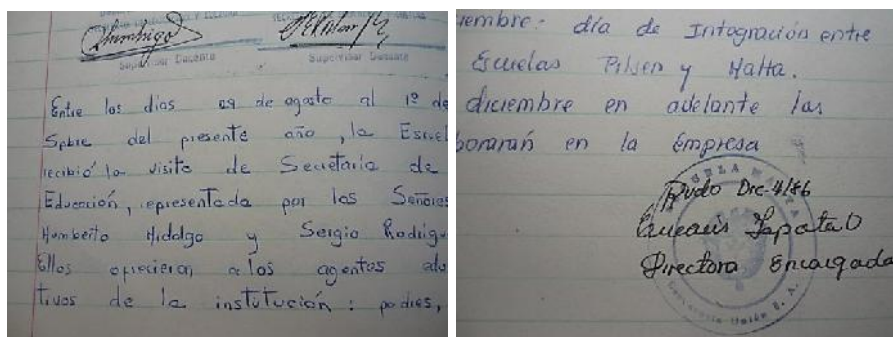 Supervisor Docente
Supervisor Docente
Entre los dias 29 de agosto al 1º de
Spbre del presente año, la Escuel
recibió la visita de Secretaría de
Educación, representada por los Señores
Humberto Hidalgo y Sergio Rodrigu
Ellos ofrecieron a los agentes edu
tivos de la institución: padres,
iembre: día de Integración entre
Escuelas Pilsen y Malta.
diciembre en adelante las
borarán en la Empresa
Dic-4/86
Zapata O
Directora Encargada